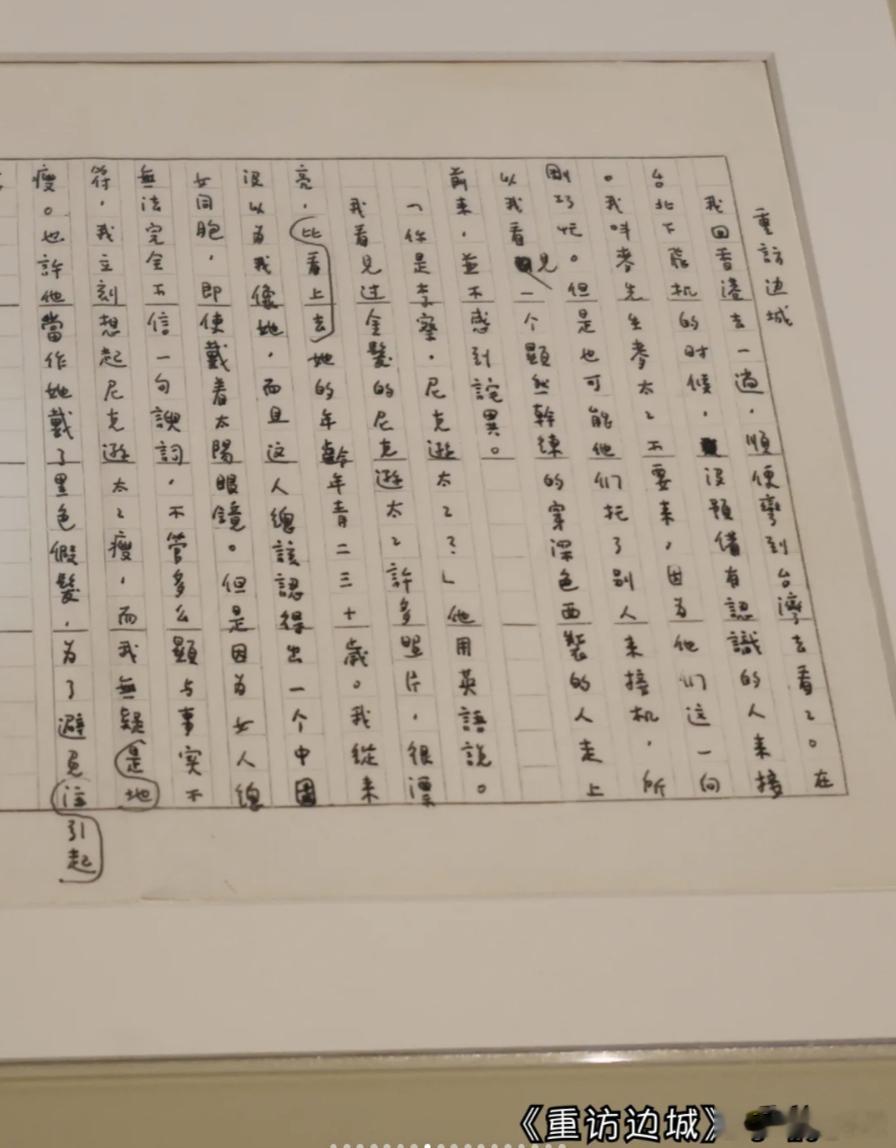 重訪边城
我回香港去一趟，順便彎到台灣去看〻。在
台北下飛机的时候，沒預備有認識的人來接
。我叫麥先生麥太〻不要來，因为他们这一向
剛巧忙。但是也可能他们托了别人来接机，所
以我看見一个顯然幹練的穿深色西裝的人走上
前來，並不感到詫異。
「你是李察・尼克遜太〻？」他用英語說。
我看見过金髮的尼克遜太〻許多照片，很漂
亮，比看上去她的年齡年青二三十歲。我從来
沒以为我像她，而且这人總該認得出一个中國
女同胞，即使戴着太陽眼鏡。但是因为女人總
無法完全不信一句諛詞，不管多么顯与事实不
符，我立刻想起尼克遜太〻瘦，而我無疑是地
瘦。也許他當作她戴了黑色假髮，为了避免注引起
《重访边城》